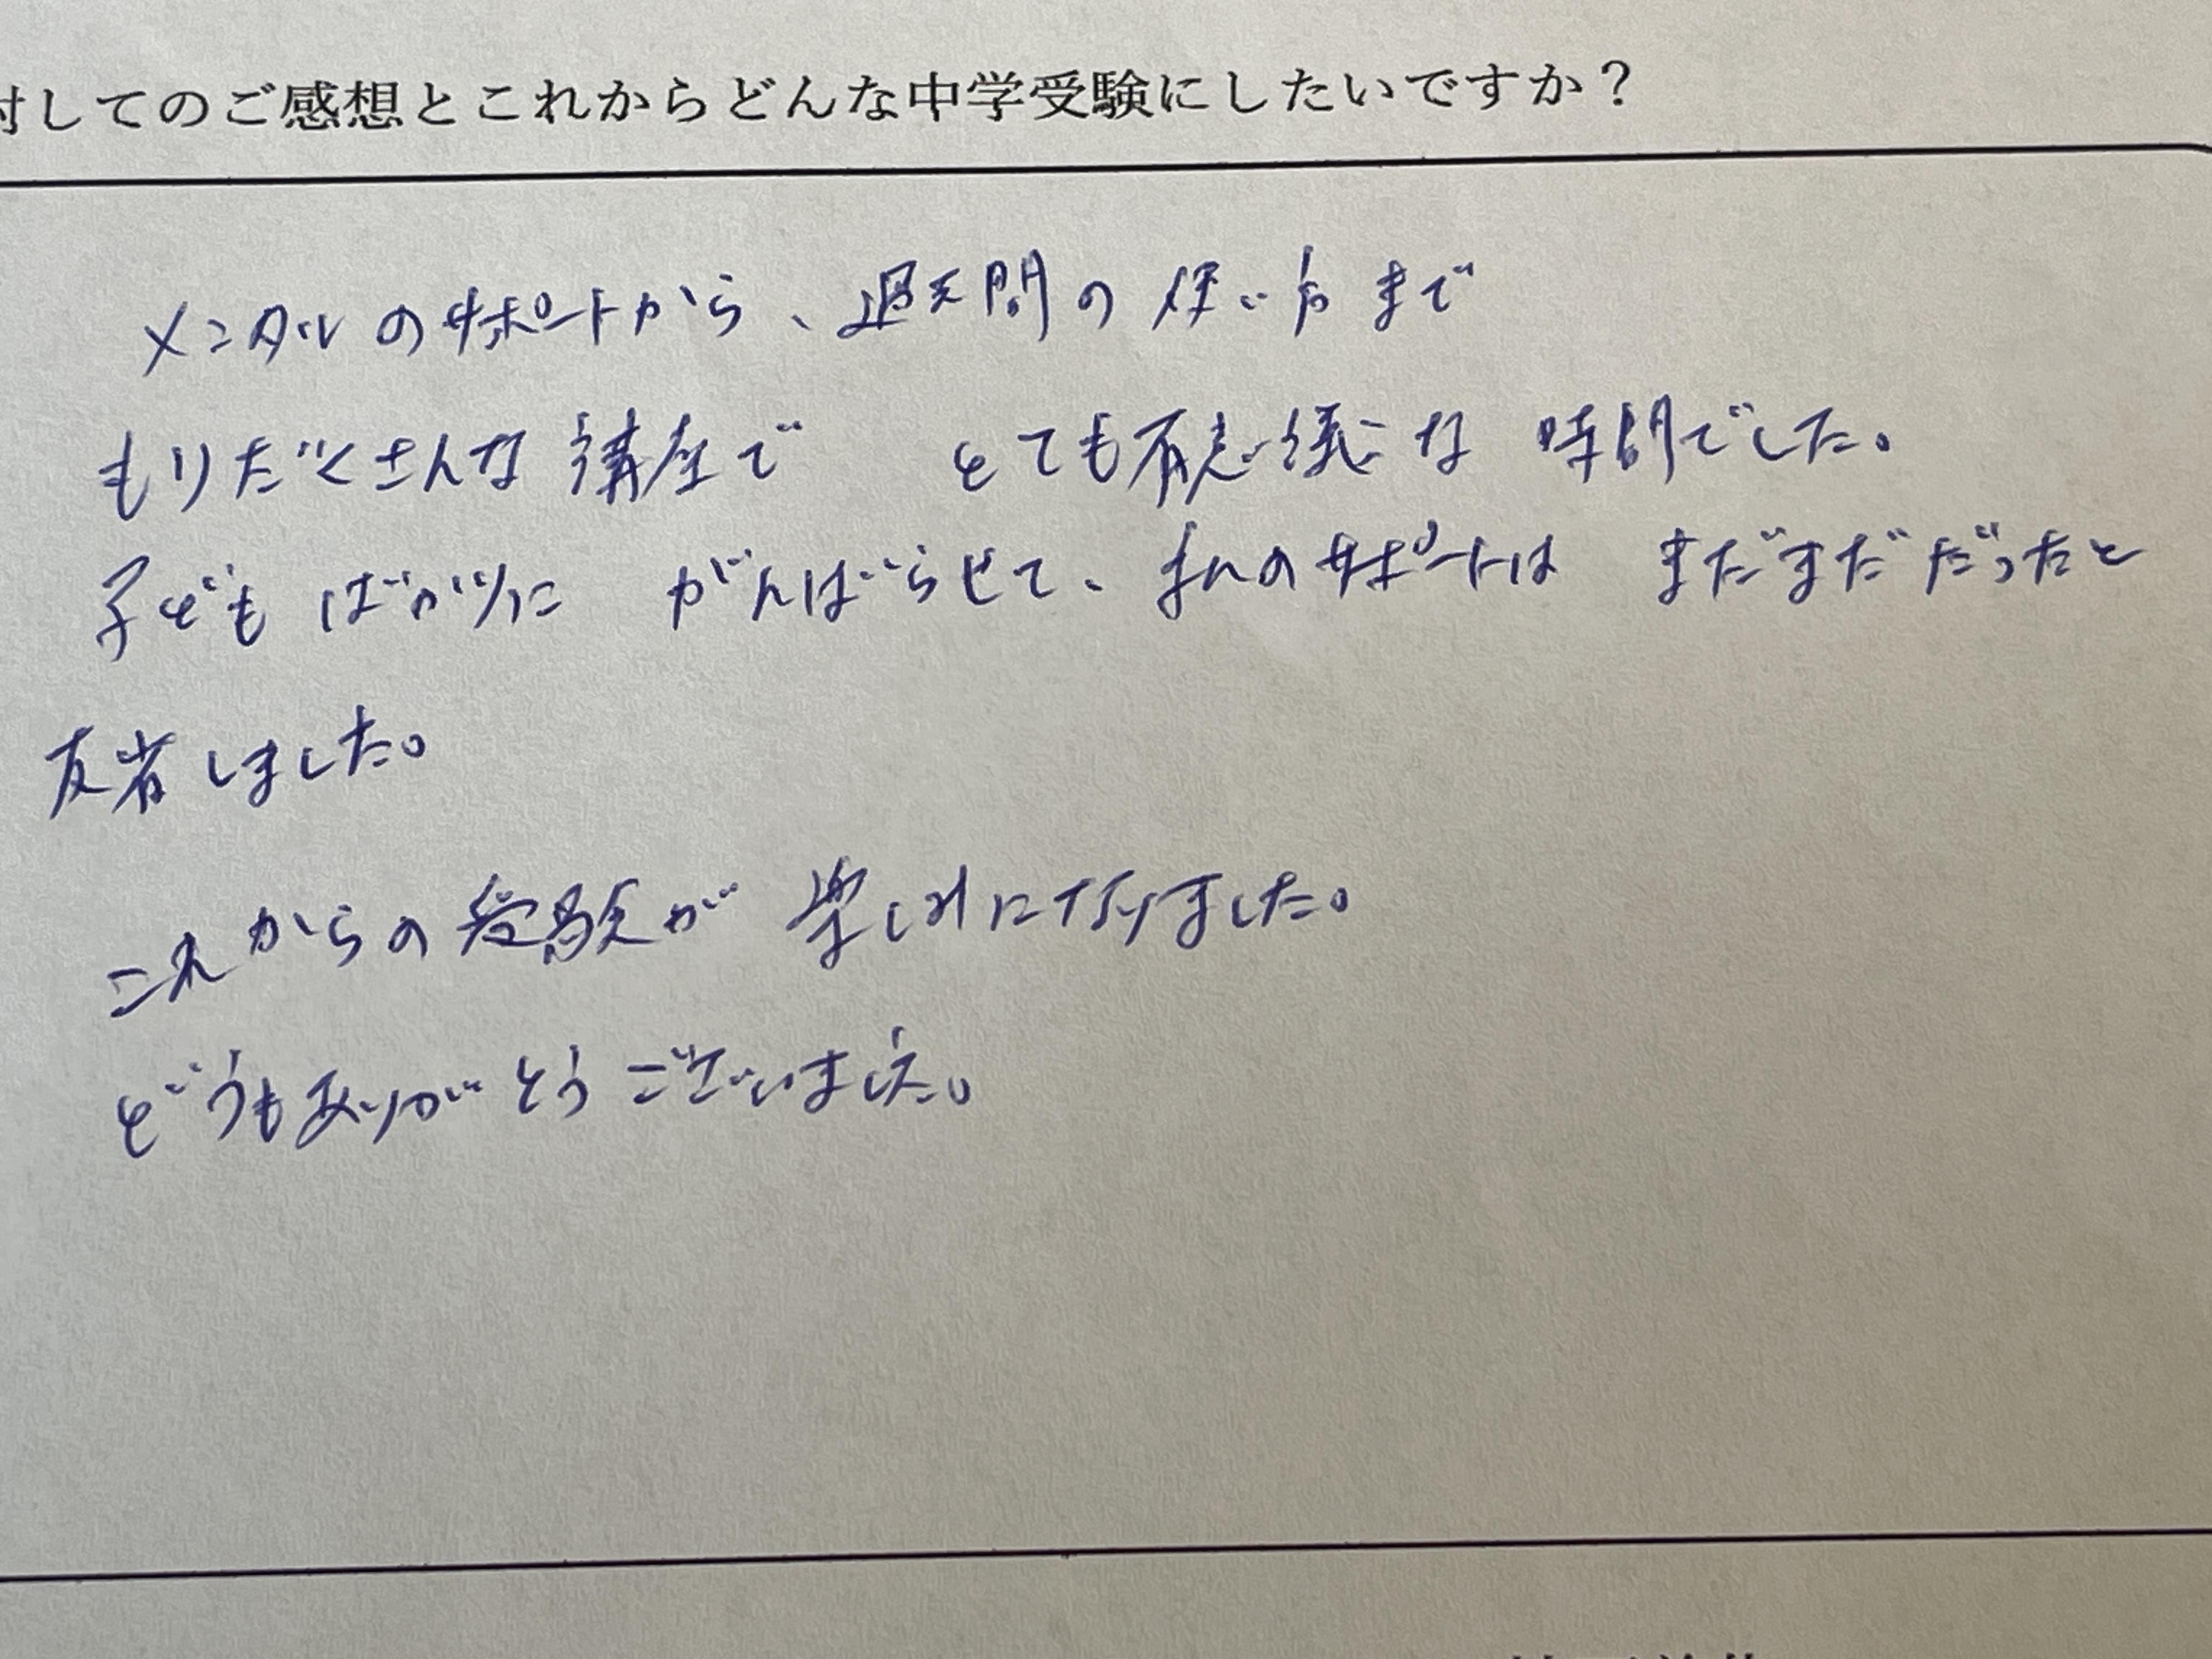 対してのご感想とこれからどんな中学受験にしたいですか？
メンタルのサポートから、過去問の使い方まで
もりだくさんな講座で とても有意義な時間でした。
子どもばかりに がんばらせて、私のサポートは まだまだだったと
反省しました。
これからの受験が楽しみになりました。
どうもありがとうございました。